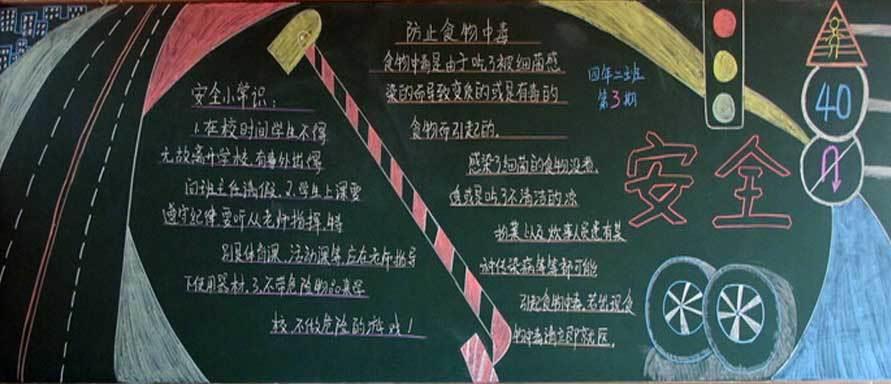 安全小常识：
1.在校时间学生不得
无故离开学校,有事外出得
向班主任请假。2.学生上课要
遵守纪律要听从老师指挥,特
别是体育课、活动课等,应在老师指导
下使用器材。3.不带危险物品来学
校,不做危险的游戏！
防止食物中毒
食物中毒是由于吃了被细菌感
染的而导致变质的或是有毒的
食物而引起的。
感染了细菌的食物没煮
或是吃了不清洁的凉
拌菜以及炊事人员患有某
种传染病等等都可能
引起食物中毒。若出现食
物中毒请立即就医。
四年二班
第3期
安全
40